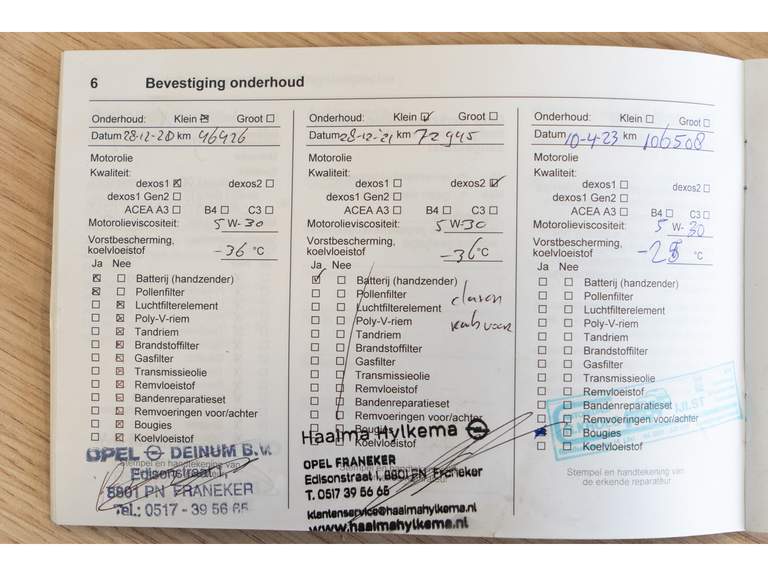 6 Bevestiging onderhoud
Onderhoud: Klein Groot
Datum 28-12-20 km 46926
Motorolie
Kwaliteit:
dexos1 dexos2
dexos1 Gen2
ACEA A3 B4 C3
Motorolieviscositeit: 5 W-30
Vorstbescherming,
koelvloeistof -36 °C
Ja Nee
Batterij (handzender)
Pollenfilter
Luchtfilterelement
Poly-V-riem
Tandriem
Brandstoffilter
Gasfilter
Transmissieolie
Remvloeistof
Bandenreparatieset
Remvoeringen voor/achter
Bougies
Koelvloeistof
Stempel en handtekening van
OPEL DEINUM B.V.
Edisonstraat 1,
8801 PN FRANEKER
Tel.: 0517 - 39 56 65
Onderhoud: Klein Groot
Datum 28-12-'21 km 72945
Motorolie
Kwaliteit:
dexos1 dexos2
dexos1 Gen2
ACEA A3 B4 C3
Motorolieviscositeit: 5 W-30
Vorstbescherming,
koelvloeistof -36 °C
Ja Nee
Batterij (handzender)
Pollenfilter
Luchtfilterelement
Poly-V-riem
Tandriem
Brandstoffilter
Gasfilter
Transmissieolie
Remvloeistof
Bandenreparatieset
Remvoeringen voor/achter
Bougies
Koelvloeistof
Haaima Hylkema
OPEL FRANEKER
Edisonstraat 1, 8801 PN Franeker
T. 0517 39 56 65
klantenservice@haaimahylkema.nl
www.haaimahylkema.nl
Onderhoud: Klein Groot
Datum 10-4-23 km 106508
Motorolie
Kwaliteit:
dexos1 dexos2
dexos1 Gen2
ACEA A3 B4 C3
Motorolieviscositeit: 5 W-30
Vorstbescherming,
koelvloeistof °C
Ja Nee
Batterij (handzender)
Pollenfilter
Luchtfilterelement
Poly-V-riem
Tandriem
Brandstoffilter
Gasfilter
Transmissieolie
Remvloeistof
Bandenreparatieset
Remvoeringen voor/achter
Bougies
Koelvloeistof
Stempel en handtekening van
de erkende reparateur